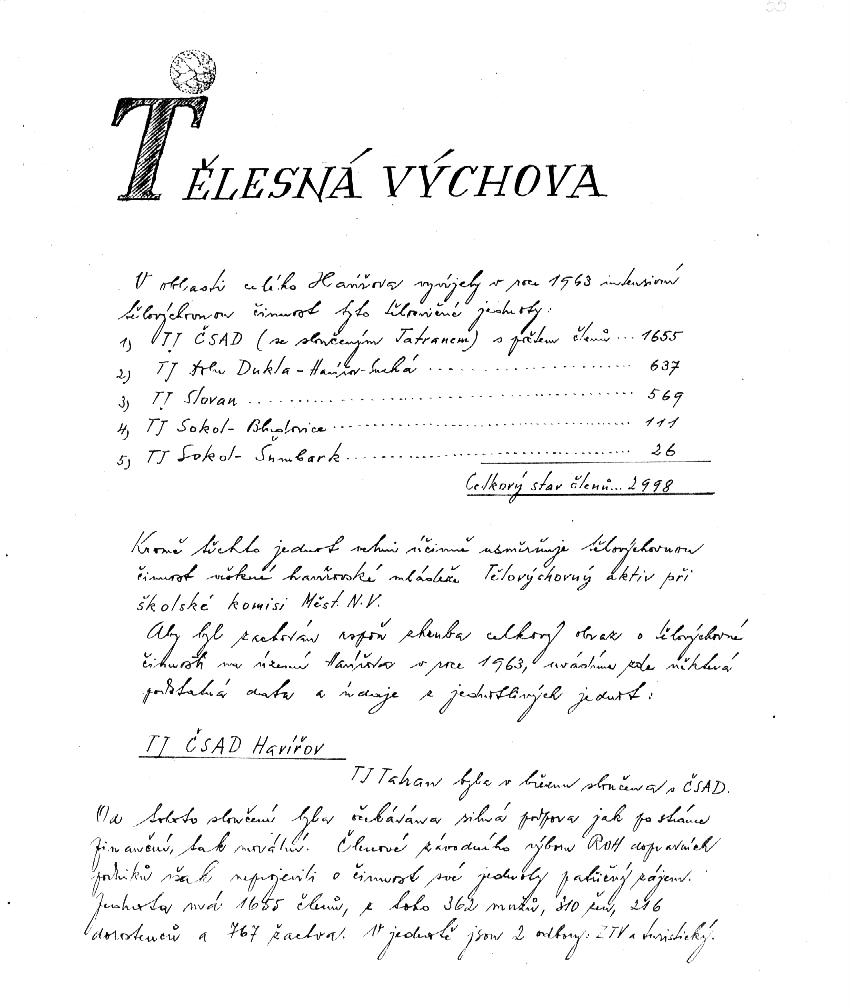 55
TĚLESNÁ VÝCHOVA
V oblasti celého Havířova vyvíjely v roce 1963 intensivní
tělovýchovnou činnost tyto tělovýchovné jednoty:
1) TJ ČSAD (se sloučeným Tatranem) s počtem členů ... 1655
2) TJ Dolu Dukla - Havířov-Suchá ............ 637
3) TJ Slovan ............ 569
4) TJ Sokol - Bludovice ............ 111
5) TJ Sokol - Šumbark ............ 26
Celkový stav členů... 2998
Kromě těchto jednot velmi účinně usměrňuje tělovýchovnou
činnost veškeré havířovské mládeže Tělovýchovný aktiv při
školské komisi Měst. N.V.
Aby byl zachován aspoň zhruba celkový obraz o tělovýchovné
činnosti na území Havířova v roce 1963, uvádíme zde některá
podstatná data a údaje z jednotlivých jednot:
TJ ČSAD Havířov
TJ Tatran byla v březnu sloučena s ČSAD.
Od tohoto sloučení byla očekávána silná podpora jak po stránce
finanční, tak morální. Členové závodního výboru ROH dopravních
podniků však neprojevili o činnost své jednoty patřičný zájem.
Jednota má 1655 členů, z toho 362 mužů, 310 žen, 216
dorostenců a 767 žactva. V jednotě jsou 2 odbory: ZTV a turistický.